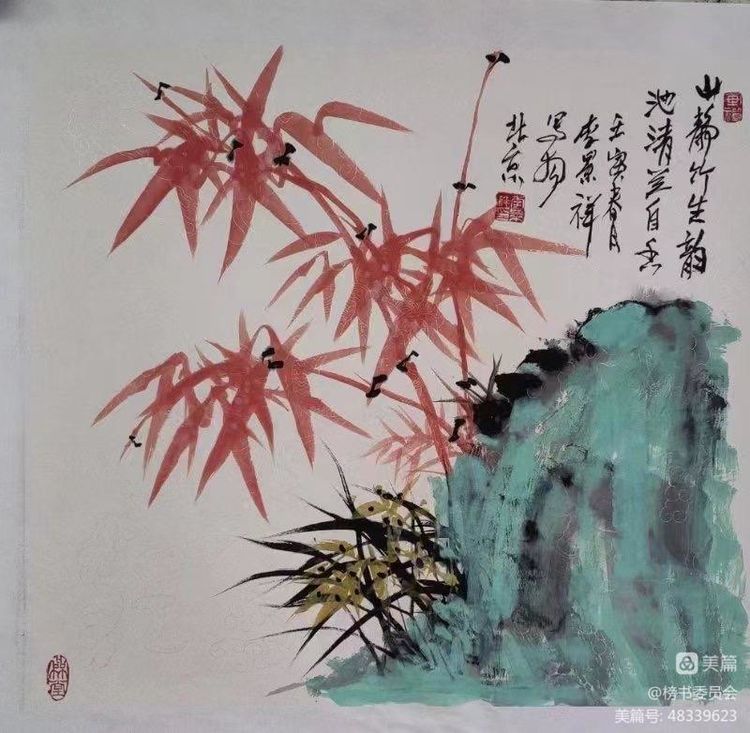 山静竹生韵
池清兰自香
壬寅春月
李景祥
写于
北京
美篇
@榜书委员会
美篇号: 48339623